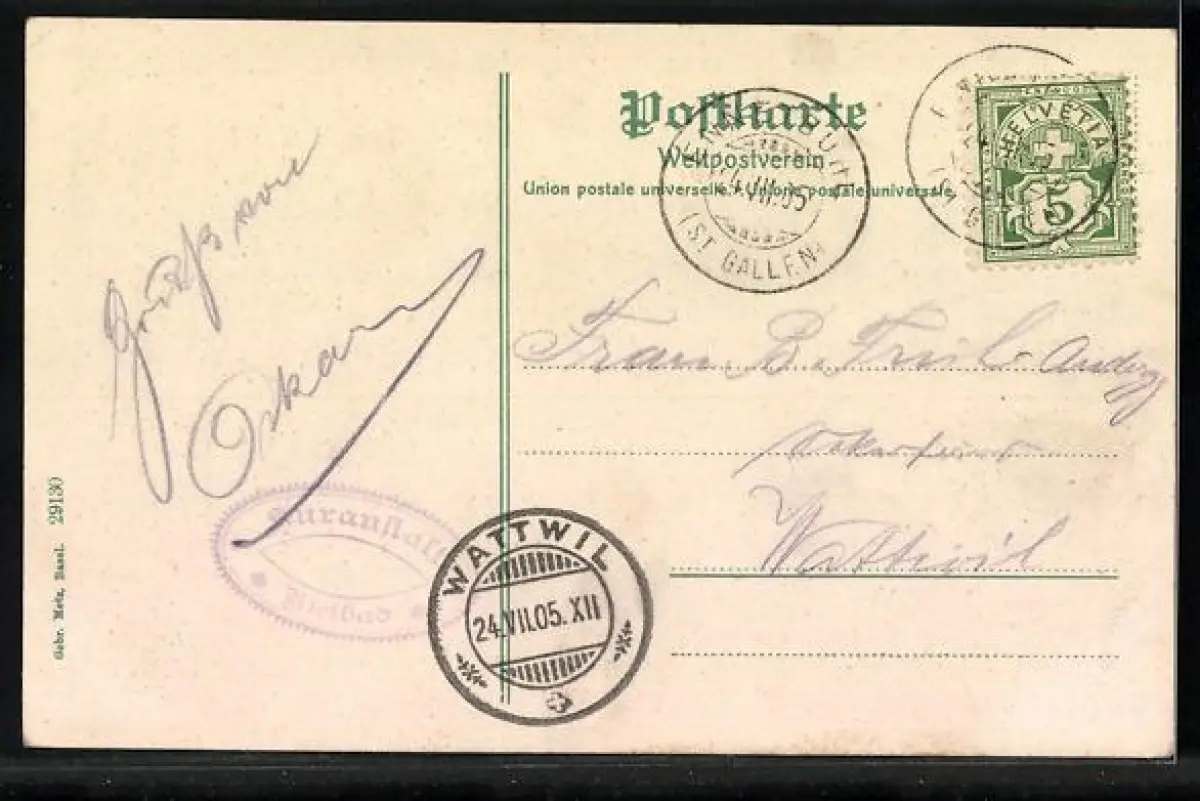 Postkarte
Weltpostverein
Union postale universelle. Unione postale universale
HELVETIA
5
VII.05
(ST GALLEN)
Gruss von
Oskar
Frau B.
Wattwil
Kuranstalt
Rietbad
WATTWIL
24.VII.05.XII
Gebr. Metz, Basel. 29130